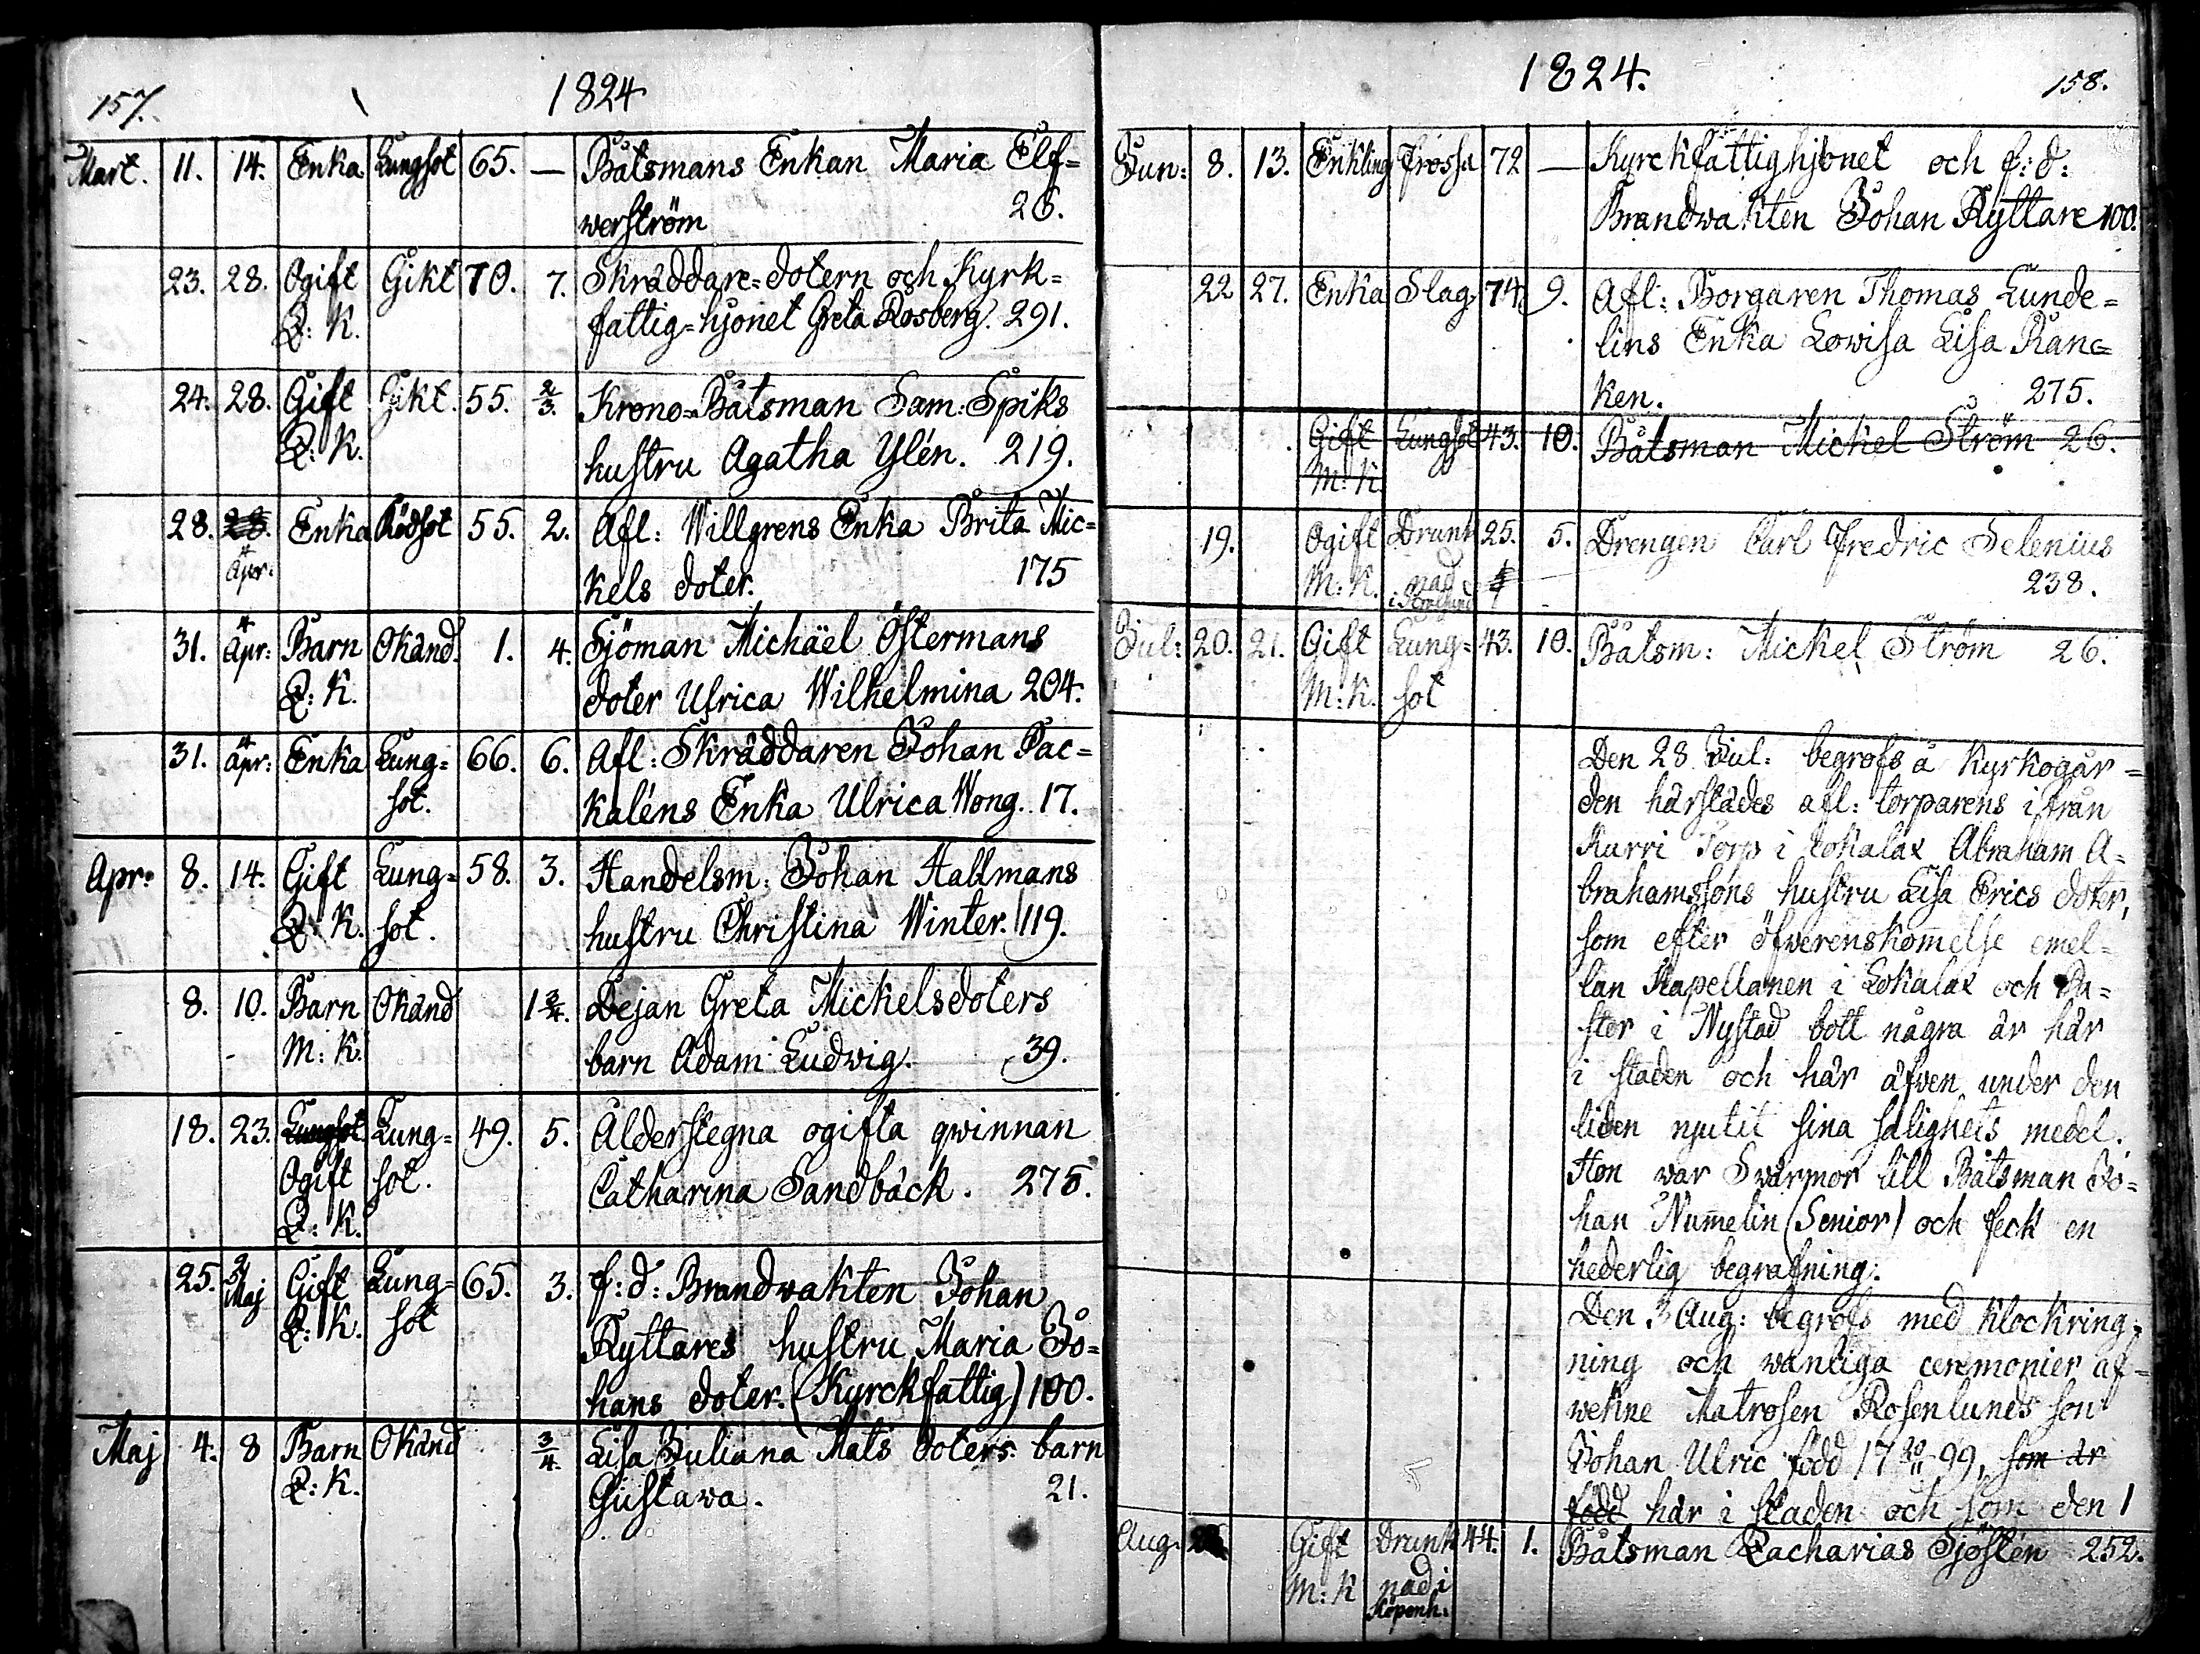 157.
1824
Mart. 11. 14. Enka Lungsot 65. — Båtsmans Enkan Maria Elf=
werström 26.
23. 28. Ogift Gikt 70. 7. Skräddare=dotern och Kyrk=
Q: K. fattig=hjonet Greta Rosberg. 291.
24. 28. Gift Gikt. 55. 2/3. Krono=Båtsman Sam: Spiks
Q: K. hustru Agatha Ylén. 219.
28. 28. Enka Rödsot 55. 2. Afl: Willgrens Enka Brita Mic=
4 Apr: kels doter. 175
31. 4 Apr: Barn Okänd. 1. 4. Sjöman Michäel Östermans
Q: K. doter Ulrica Wilhelmina 204.
31. 4 Apr: Enka Lung= 66. 6. Afl: Skräddaren Johan Pac=
sot. kaléns Enka Ulrica Wong. 17.
Apr: 8. 14. Gift Lung= 58. 3. Handelsm: Johan Hallmans
Q: K. sot. hustru Christina Winter. 119.
8. 10. Barn Okänd 1 3/4. Dejan Greta Mickelsdoters
M: K. barn Adam Ludwig. 39.
18. 23. Lungsot Lung= 49. 5. Ålderstegna ogifta qwinnan
Ogift sot. Catharina Sandbäck. 275.
Q: K.
25. 2 Maj Gift Lung= 65. 3. f: d: Brandwakten Johan
Q: K. sot Ryttares hustru Maria Jo=
hans doter. (Kyrckfattig) 100.
Maj 4. 8 Barn Okänd 3/4. Lisa Juliana Mats doters barn
Q: K. Gustawa. 21.
1824.
158.
Jun: 8. 13. Enkling Frossa 72 — Kyrckfattighjonet och f: d:
Brandwakten Johan Ryttare 100.
22 27. Enka Slag 74. 9. Afl: Borgaren Thomas Lunde=
lins Enka Lowisa Lisa Ranc=
ken. 275.
Gift Lungsot 43. 10. Båtsman Michel Ström 26.
M: K.
19. Ogift Drunk 25. 5. Drengen Carl Fredric Selenius
M: K. nad 238.
Jul: 20. 21. Gift Lung= 43. 10. Båtsm: Mickel Ström 26.
M: K. sot
Den 28 Jul: begrofs å Kyrkogår=
den härstädes afl: torparens ifrån
Kurri Torp i Lokalax Abraham A=
brahamssons hustru Lisa Erics doter,
som efter öfverenskommelse emel=
lan Kapellanen i Lokalax och Pa=
stor i Nystad bott några år här
i staden och här äfven under den
tiden njutit sina salighets medel.
Hon war Swärmor till Båtsman Jo=
han Numelin (Senior) och feck en
hederlig begrafning.
Den 3 Aug: begrofs med klockring=
ning och wanliga ceremonier af=
wekne Matrosen Rosenlunds son
Johan Ulric född 17 20/11 99, som är
född här i staden och som den 1
Aug. Gift Drunk 44. 1. Båtsman Zacharias Sjöstén 252.
M: K nad i
Köpenh: